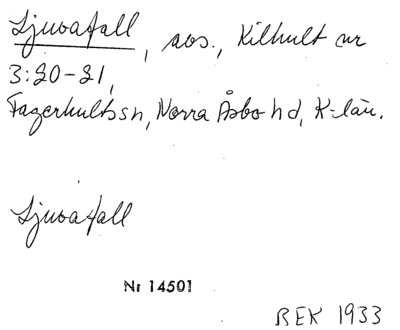 Ljuvafall, avs., Kilhult nr
3:20-21,
Fagerhults sn, Norra Åsbo hd, K-län.
Ljuvafall
Nr 14501
BEK 1933